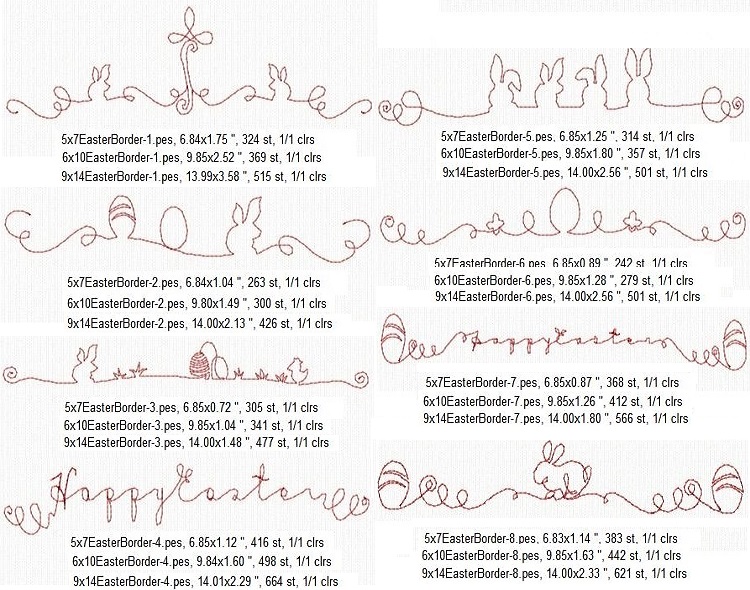 5x7EasterBorder-1.pes, 6.84x1.75 ", 324 st, 1/1 clrs
6x10EasterBorder-1.pes, 9.85x2.52 ", 369 st, 1/1 clrs
9x14EasterBorder-1.pes, 13.99x3.58 ", 515 st, 1/1 clrs
5x7EasterBorder-2.pes, 6.84x1.04 ", 263 st, 1/1 clrs
6x10EasterBorder-2.pes, 9.80x1.49 ", 300 st, 1/1 clrs
9x14EasterBorder-2.pes, 14.00x2.13 ", 426 st, 1/1 clrs
5x7EasterBorder-3.pes, 6.85x0.72 ", 305 st, 1/1 clrs
6x10EasterBorder-3.pes, 9.85x1.04 ", 341 st, 1/1 clrs
9x14EasterBorder-3.pes, 14.00x1.48 ", 477 st, 1/1 clrs
Happy Easter
5x7EasterBorder-4.pes, 6.85x1.12 ", 416 st, 1/1 clrs
6x10EasterBorder-4.pes, 9.84x1.60 ", 498 st, 1/1 clrs
9x14EasterBorder-4.pes, 14.01x2.29 ", 664 st, 1/1 clrs
5x7EasterBorder-5.pes, 6.85x1.25 ", 314 st, 1/1 clrs
6x10EasterBorder-5.pes, 9.85x1.80 ", 357 st, 1/1 clrs
9x14EasterBorder-5.pes, 14.00x2.56 ", 501 st, 1/1 clrs
5x7EasterBorder-6.pes, 6.85x0.89 ", 242 st, 1/1 clrs
6x10EasterBorder-6.pes, 9.85x1.28 ", 279 st, 1/1 clrs
9x14EasterBorder-6.pes, 14.00x2.56 ", 501 st, 1/1 clrs
Happy Easter
5x7EasterBorder-7.pes, 6.85x0.87 ", 368 st, 1/1 clrs
6x10EasterBorder-7.pes, 9.85x1.26 ", 412 st, 1/1 clrs
9x14EasterBorder-7.pes, 14.00x1.80 ", 566 st, 1/1 clrs
5x7EasterBorder-8.pes, 6.83x1.14 ", 383 st, 1/1 clrs
6x10EasterBorder-8.pes, 9.85x1.63 ", 442 st, 1/1 clrs
9x14EasterBorder-8.pes, 14.00x2.33 ", 621 st, 1/1 clrs